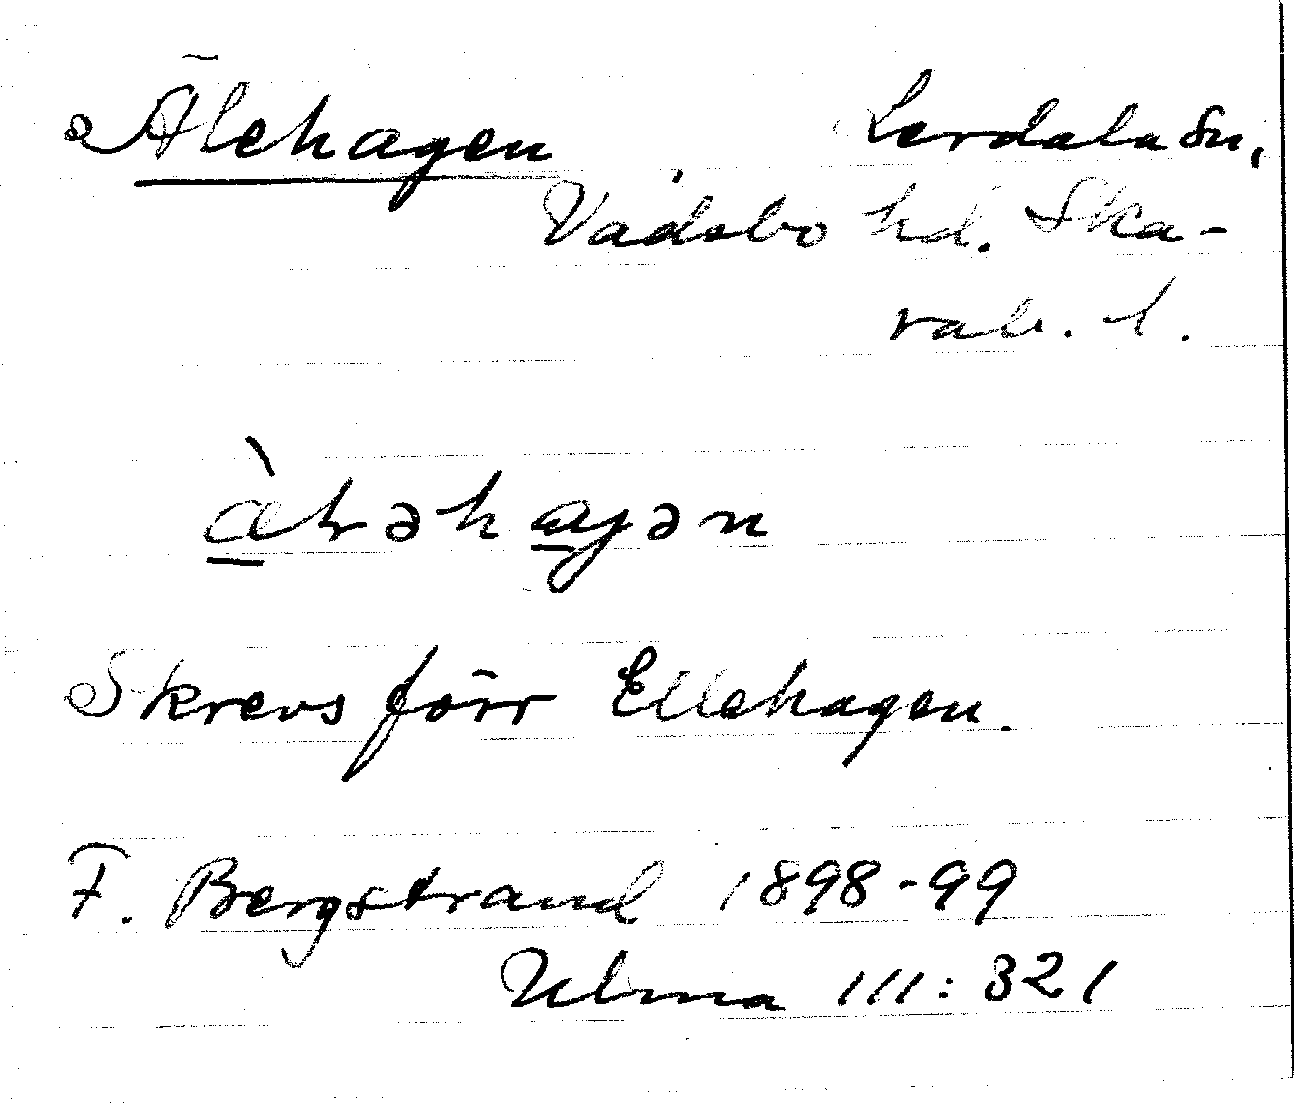 Älehagen Lerdala sn,
Vadsbo hd. Ska-
rab. l.
æ̀ɫəhaɡən
Skrevs förr Ellehagen.
F. Bergstrand 1898-99
Ulma 111:321